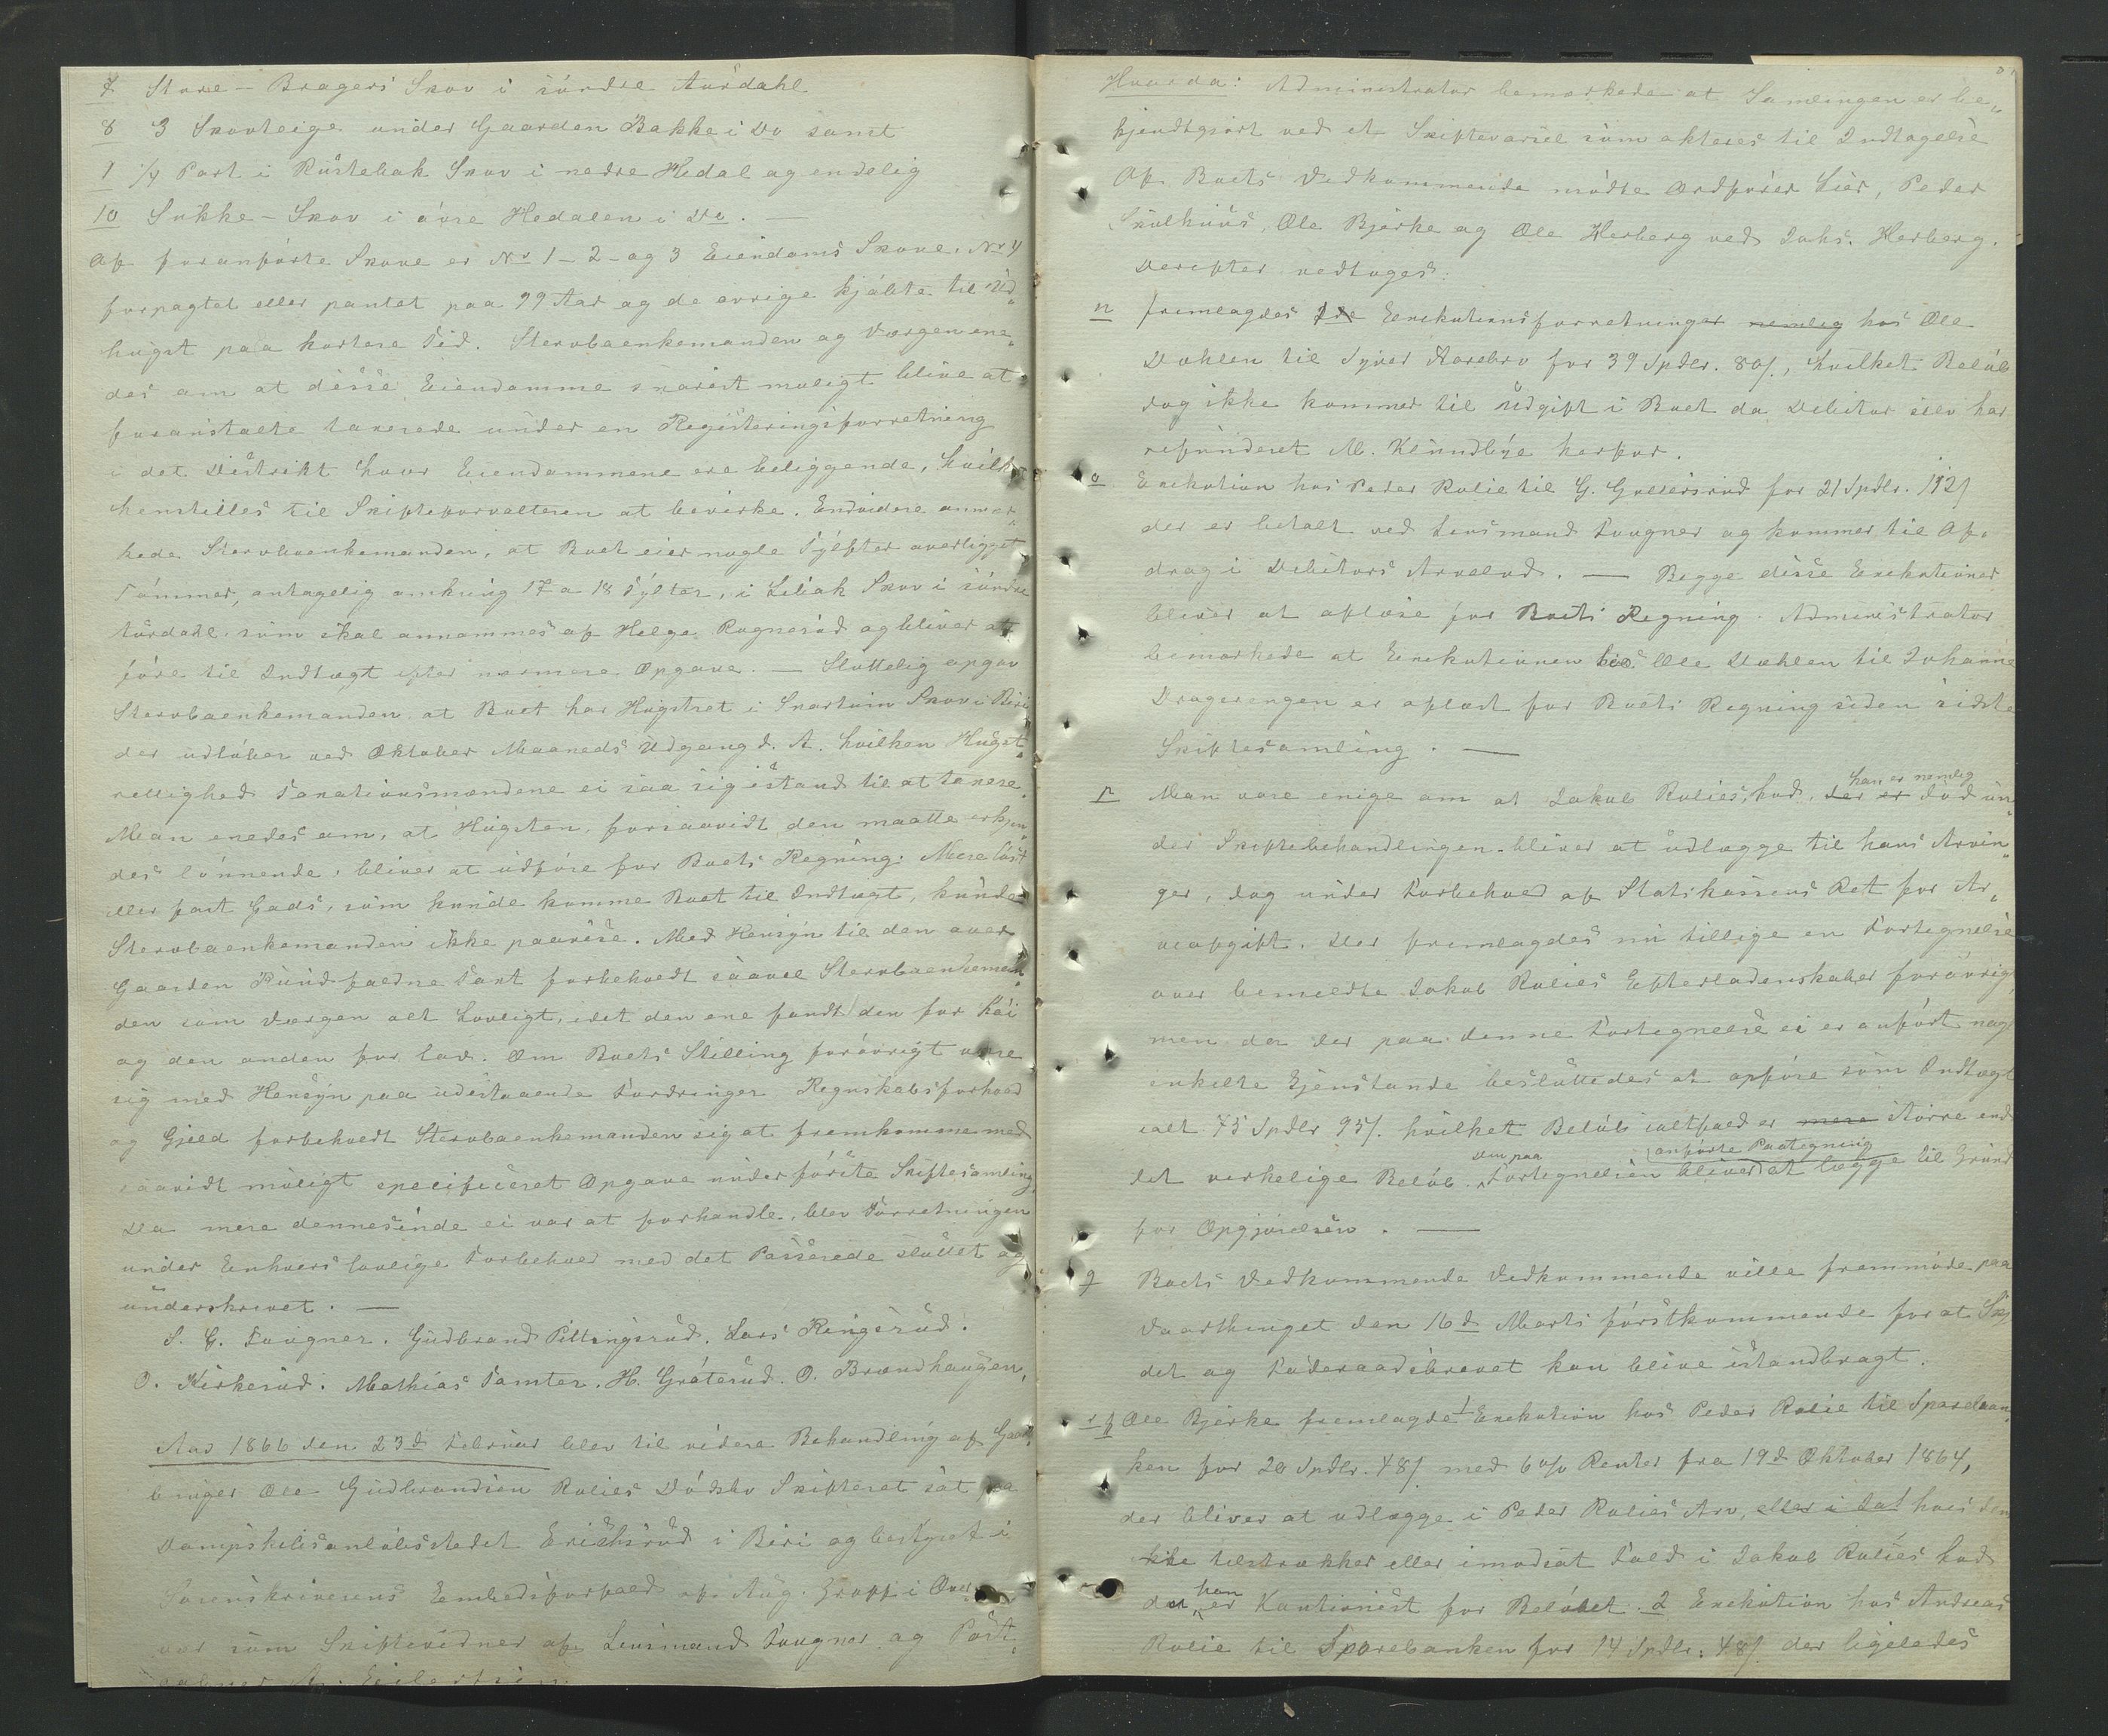 7 Store-Bragers Skov i søndre Aurdahl
8 3 Skovteige under Gaarden Bakke i Do samt
9 1/4 Part i Rustebak Skov i nedre Hedal og endelig
10 Sukke-Skov i øvre Hedalen i Do. —
Af foranførte Skove er No 1-2-og 3 Eiendoms Skove. No 4
forpagtet eller pantet paa 99 Aar og de øvrige kjøbte til Ud„
hugst paa kortere Tid. Stervboenkemanden og Værgen ene„
des om at disse Eiendomme snarest muligt blive at
foranstalte taxerede under en Registeringsforretning
i det Distrikt hvor Eiendommene ere beliggende, hvilk
henstilles til Skifteforvalteren at bevirke. Endvidere anmær„
kede Stervboenkemanden, at Boet eier nogle Tylfter overligget
Tømmer, antagelig omkring 17 a 18 Tylter, i Liliak Skov i søndre
Aurdahl som skal annammes af Helge Rognerud og bliver at
føre til Indtægt efter nærmere Opgave. — Sluttelig opgav
Stervboenkemanden at Boet har Hugstret i Snartum Skov i Biri
der udløber ved Oktober Maaneds Udgang d. A. hvilken Hugst„
rettighed Taxationsmændene ei saa sig istand til at taxere.
Man enedes om, at Hugsten, forsaavidt den maatte erkjen„
des lønnende, bliver at udføre for Boets Regning. Mere løst
eller fast Gods, som kunde komme Boet til Indtægt, kunde
Stervboenkemanden ikke paavise. Med Hensyn til den over
Gaarden Rund faldne Taxt forbeholdt saavel Stervboenkeman„
den som Værgen alt Lovligt, idet den ene fandt den for høi
og den anden for lav. Om Boets Stilling forøvrigt være
sig med Hensyn paa udestaaende Fordringer Regnskabsforhold
og Gjeld forbeholdt Stervboenkemanden sig at fremkomme med
saavidt muligt specificeret Opgave under første Skiftesamling.
Da mere dennesinde ei var at forhandle, blev Forretningen
under Enhvers lovlige Forbehold med det Passerede sluttet og
underskrevet. —
S. C. Fougner. Gudbrand Pittingsrud. Lars Ringerud.
O. Kirkerud. Mathias Tamter. H. Gráterud. O. Brændhaugen,
Aar 1866 den 23de Februar blev til videre Behandling af Gaard„
bruger Ole Gudbrandsen Rolies Dødsbo Skifteret sat paa
Dampskibsanløbsstedet Erichsrud i Biri og bestyret i
Sorenskriverens Embedsforfald af Aug. Gropp i Over
vær som Skiftevidner af Lensmand Fougner og Post„
aabner A. Eilertsen.
Hvorda: Administrator bemærkede at Samlingen er be„
kjendtgjort ved et Skiftevarsel som akteres til Indtagelse
Af Boets Vedkommende mødte Ordfører Lier, Peder
Skolhuus, Ole Bjørke og Ole Herberg ved Johs. Herberg.
Derefter vedtoges:
n fremlagdes Exekutionsforretninger nemlig hos Ole
Dæhlen til Syver Aarebro for 39 Spdlr. 80/, hvilket Beløb
dog ikke kommer til Udgift i Boet da Debitor selv har
refunderet M. Klundbye herfor.
o Exekution hos Peder Rolie til G. Goltersrud for 21 Spdlr. 112/
der er betalt ved Lensmand Fougner og kommer til Af„
drag i Debitors Arvelod. — Begge disse Exekutioner
bliver at afløse for Boets Regning. Administrator
bemærkede at Exekutionen hos Ole Dæhlen til Johanne
Dragerengen er afløst for Boets Regning siden sidste
Skiftesamling. —
p Man vare enige om at Jakob Rolies, Lod, der er han er nemlig død un
der Skiftebehandlingen - bliver at udlægge til hans Arvin„
ger, dog under Forbehold af Statskassens Ret for Ar„
veafgift. Der fremlagdes nu tillige en Fortegnelse
over bemeldte Jakob Rolies Efterladenskaber forøvrigt
men da der paa denne Fortegnelse ei er anført nog
enkelte Gjenstande besluttedes at opføre som Indtægt
ialt 75 Spdlr 95/. hvilket Beløb ialtfald er mere større end
det verkelige Beløb. Den paa Fortegnelsen anførte Paategning bliver at lægge til Grund
for Opgjørelsen. —
q Boets Vedkommende Vedkommende ville fremmøde paa
Vaarthinget den 16de Marts førstkommende for at Skj
det og Føderaadsbrevet kan blive istandbragt.
r Ole Bjørke fremlagde 1 Exekution hos Peder Rolie til Spareban„
ken for 20 Spdlr. 48/ med 6 o/o Renter fra 19de Oktober 1864,
der bliver at udlægge i Peder Rolies Arv, eller i Jak hvis den
ikke tilstrækker eller i modsat Fald i Jakob Rolies Lod
da han er Kautionist for Beløbet. 2 Exekution hos Andreas
Rolie til Sparebanken for 14 Spdlr. 48/ der ligeledes